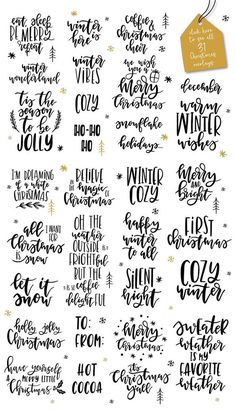 eat sleep
BE MERRY
repeat
winter
is here
caffeine
christmas
cheer
click here
to see all
31
Christmas
overlays
winter
wonderland
winter
VIBES
we wish you a
Merry
Christmas
december
'tis the
SEASON
to be
JOLLY
COZY
HO-HO
HO
snowflake
holidays
WARM
WINTER
wishes
I'M DREAMING
of a white
CHRISTMAS
BELIEVE
IN THE
Magic
OF
CHRISTMAS
WINTER
COZY
Merry
and
bright
all I WANT
FOR
Christmas
is snow
OH THE
WEATHER
OUTSIDE IS
FRIGHTFUL
BUT THE
coffee
IS SO
delightful
happy
winter
to all
FIRST
Christmas
let it
snow
Silent
night
COZY
winter
holly jolly
Christmas
TO:
FROM:
Merry
Christmas
SWEATER
weather
IS MY
FAVORITE
weather
have yourself
A MERRY LITTLE
Christmas
HOT
COCOA
It's
Christmas
y'all